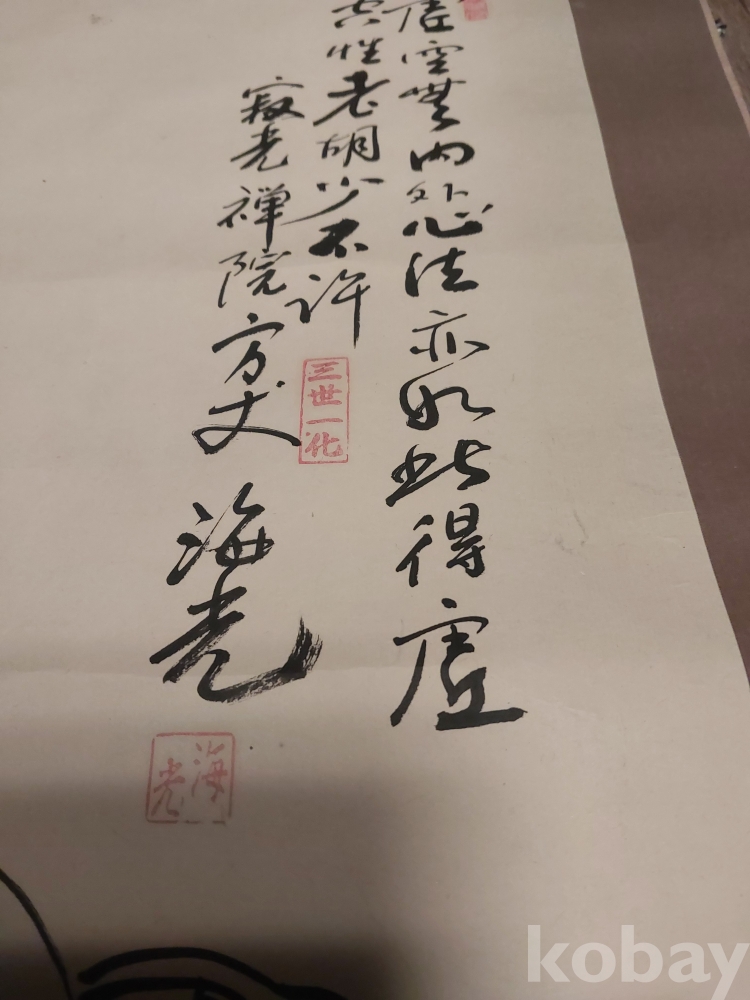 虚空無内外心法亦如此得虚
空性老胡少不許
三世一化
寂光禅院方丈
海光
海光
kobay